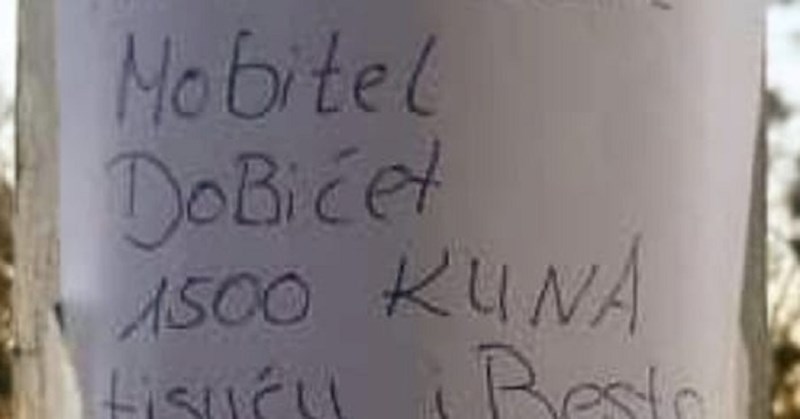 Mobitel
DoBićet
1500 KUNA
tisuću i